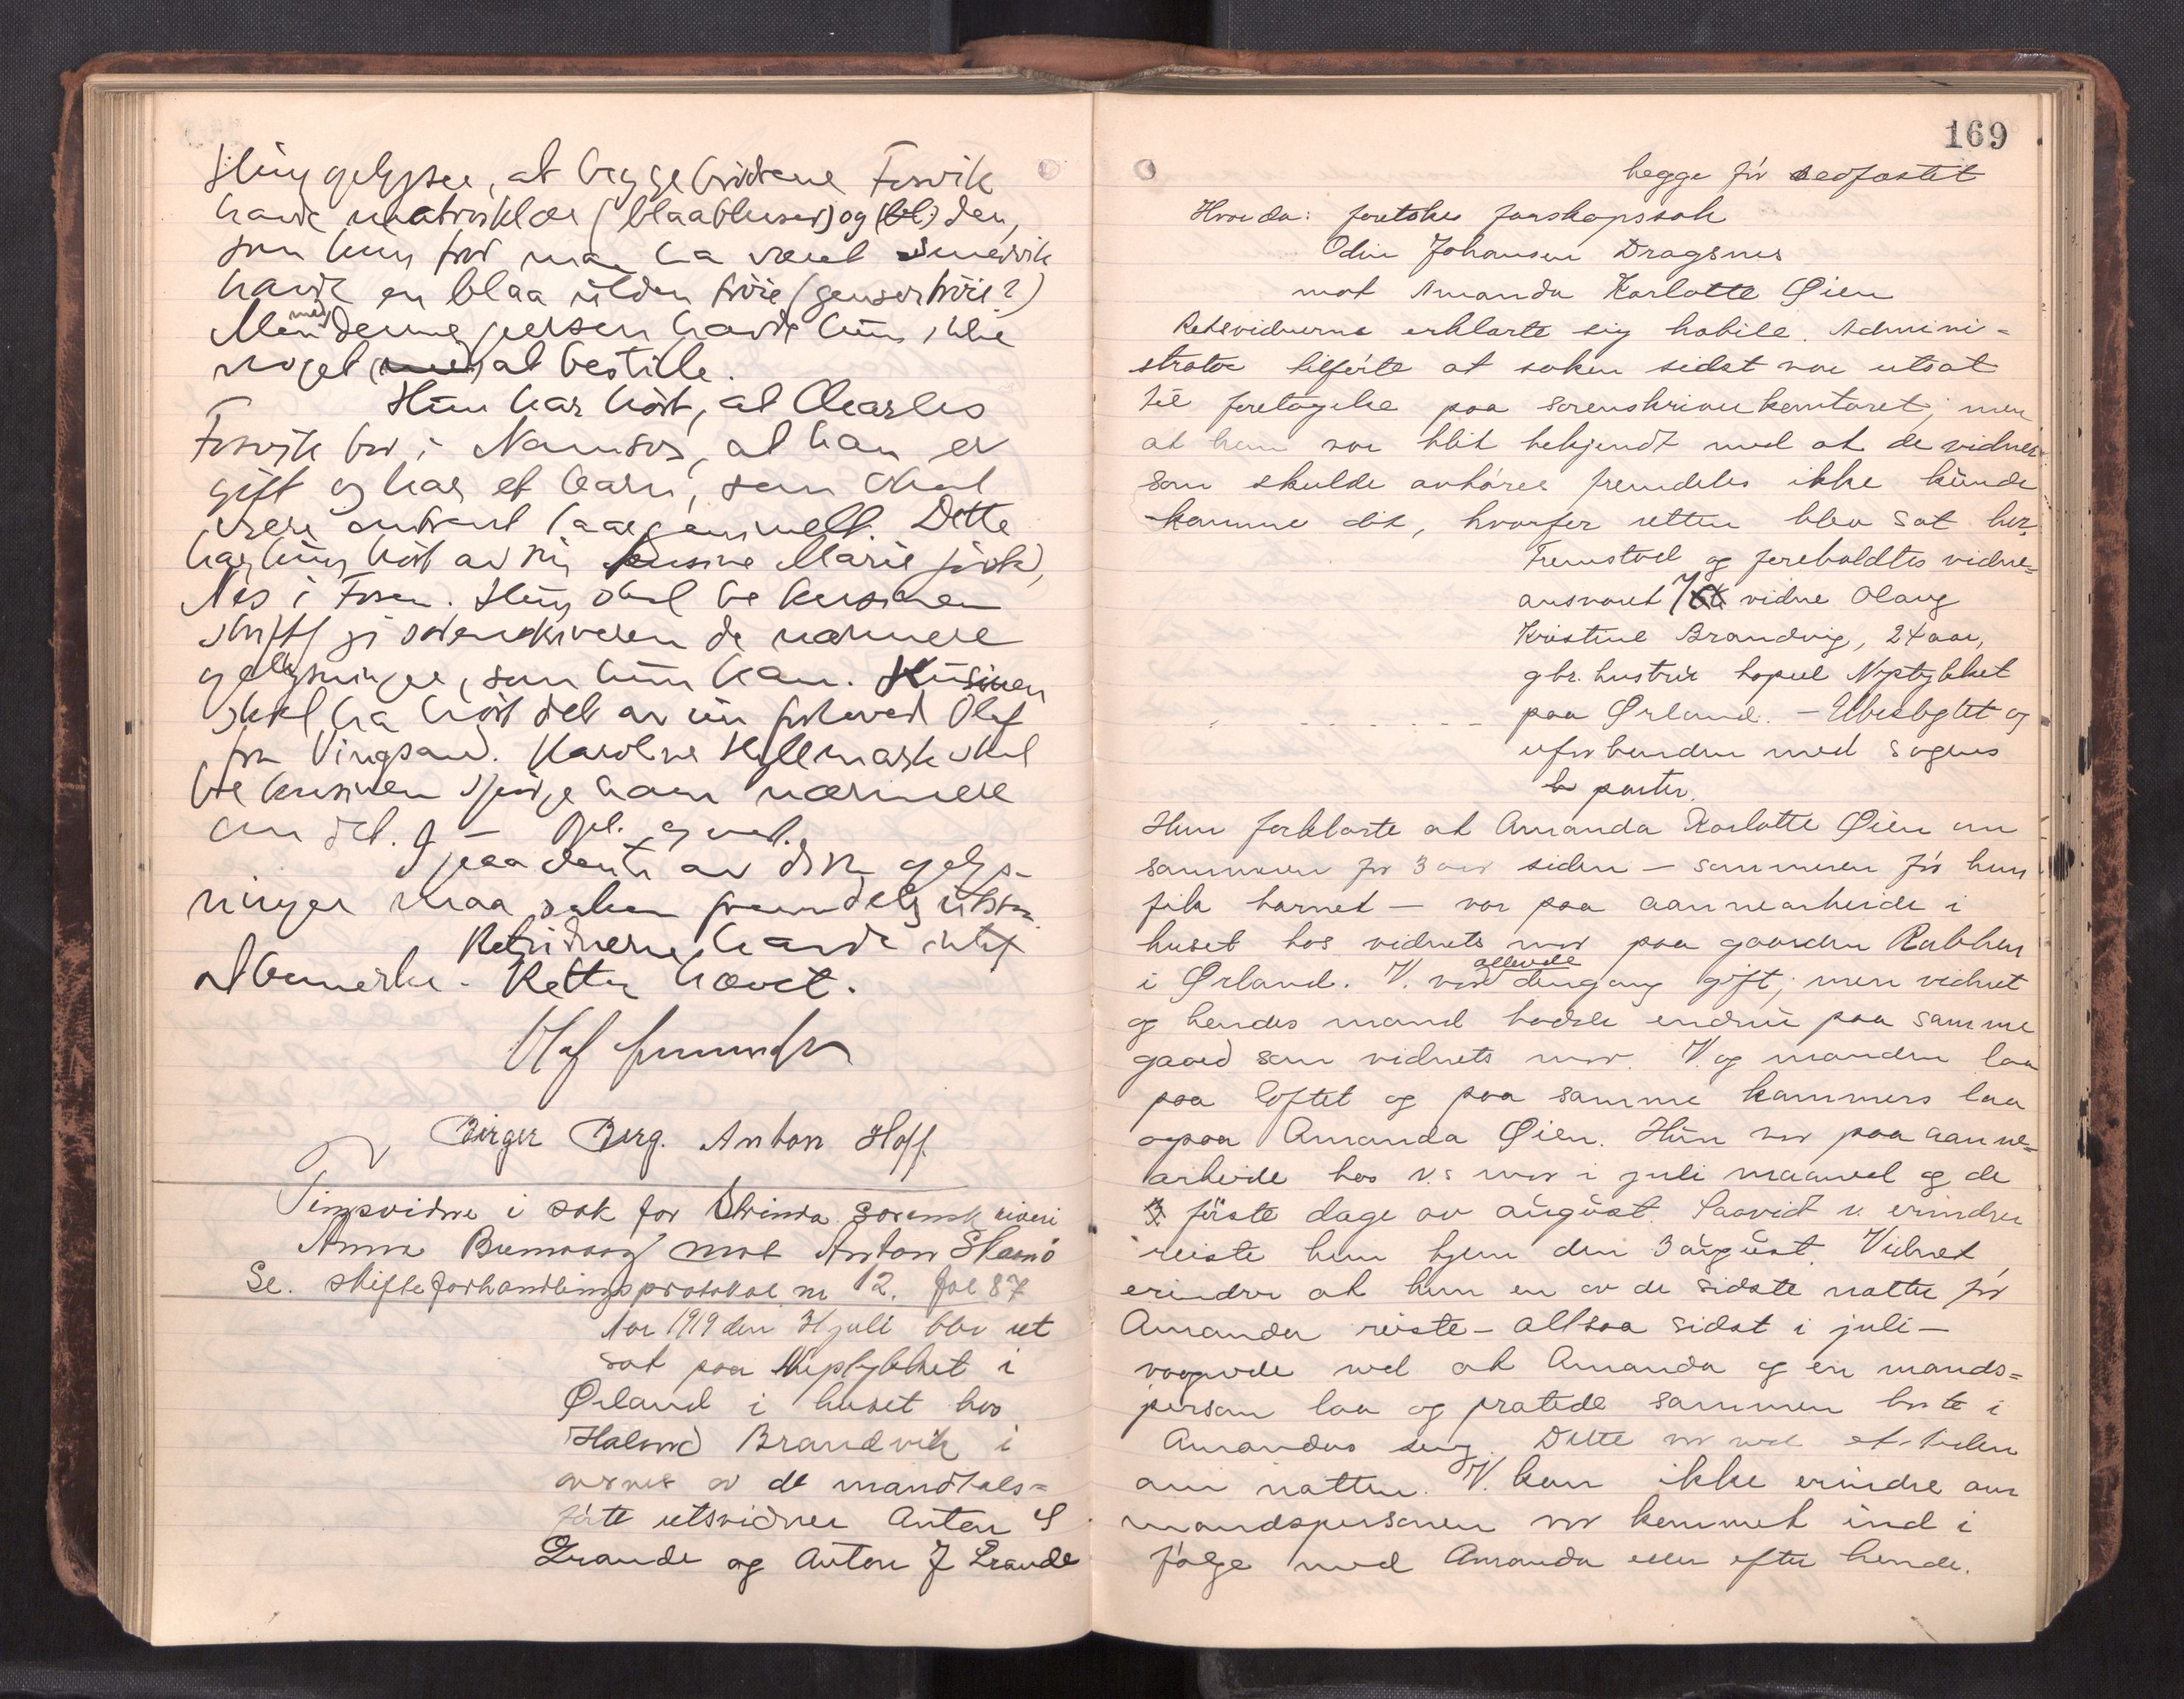 at begge brødrene Fosvik
havde matrosklær (blaa bluser) og den,
som hun tror maa ha været Smevik
havde en blaa ulden trøie (gensertrøie?)
Med denne person havde hun ikke
noget at bestille.
Hun har hørt, at Charles
Fosvik bor i Namsos, at han er
gift og har et barn, som skal
være omtrent aargammelt. Dette
har hun hørt av sin kusine Marie
Nes i Fosen. Hun skal be kusinen
skriftl gi sorenskriveren de nærmere
oplysninger, som hun kan. Kusinen
skal ha hørt det av en ved Olaf
fra Vingsand. Karoline Hyllmark skal
be kusinen spørge ham nærmere
om det. Opl. og vedt.
I paavente av disse oplys-
ninger maa saken fremdeles utstaa
Retsvidnerne havde intet
at bemerke. Retten hævet.
Olaf
Birger Berg. Anton Hoff
Tingsvidne i sak for Strinda sorenskriveri
Anna mot Anton
Se. skifteforhandlingsprotokol nr 12. fol 87
Aar 1919 den 31 juli blev ret
sat paa Nyplykket i
Ørland i huset hos
Halvard Brandvik i
overvær av de mandtals-
førte retsvidner Anton S
Grande og Anton J Grande
169
begge før edfæstet
Hvorda: foretokes farskapssak
Odin Johansen Dragsnes
mot Amanda Karlotte Øien
Retsvidnerne erklærte sig habile. Admini-
strator tilførte at saken sidst var utsat
til foretagelse paa sorenskriverkontoret; men
at han var blit bekjendt med at de vidner
som skulde avhøres fremdeles ikke kunde
komme dit, hvorfor retten blev sat her.
Fremstod og foreholdtes vidne-
ansvaret 1ste vidne Olaug
Kristine Brandvig, 24 aar,
gbr. hustru bopæl Nyplykket
paa Ørland. - Ubeslegtet og
uforbunden med sagens
parter.
Hun forklarte at Amanda Karlotte Øien om
sommeren for 3 aar siden - sommeren før hun
fik barnet - var paa aannearbeide i
huset hos vidnets mor paa gaarden Rabben
i Ørland. V. var allerede dengang gift; men vidnet
og hendes mand bodde endnu paa samme
gaard som vidnets mor. V. og manden laa
paa loftet og paa samme kammers laa
ogsaa Amanda Øien. Hun var paa aanne-
arbeide hos v.s mor i juli maaned og de
3 første dage av august. Saavidt v. erindrer
reiste hun hjem den 3 august. Vidnet
erindrer at hun en av de sidste nætter før
Amanda reiste - altsaa sidst i juli -
vaagnede ved at Amanda og en mands-
person laa og pratede sammen borte i
Amandas seng. Dette var ved et-tiden
om natten. V. kan ikke erindre om
mandspersonen var kommet ind i
følge med Amanda eller efter hende.